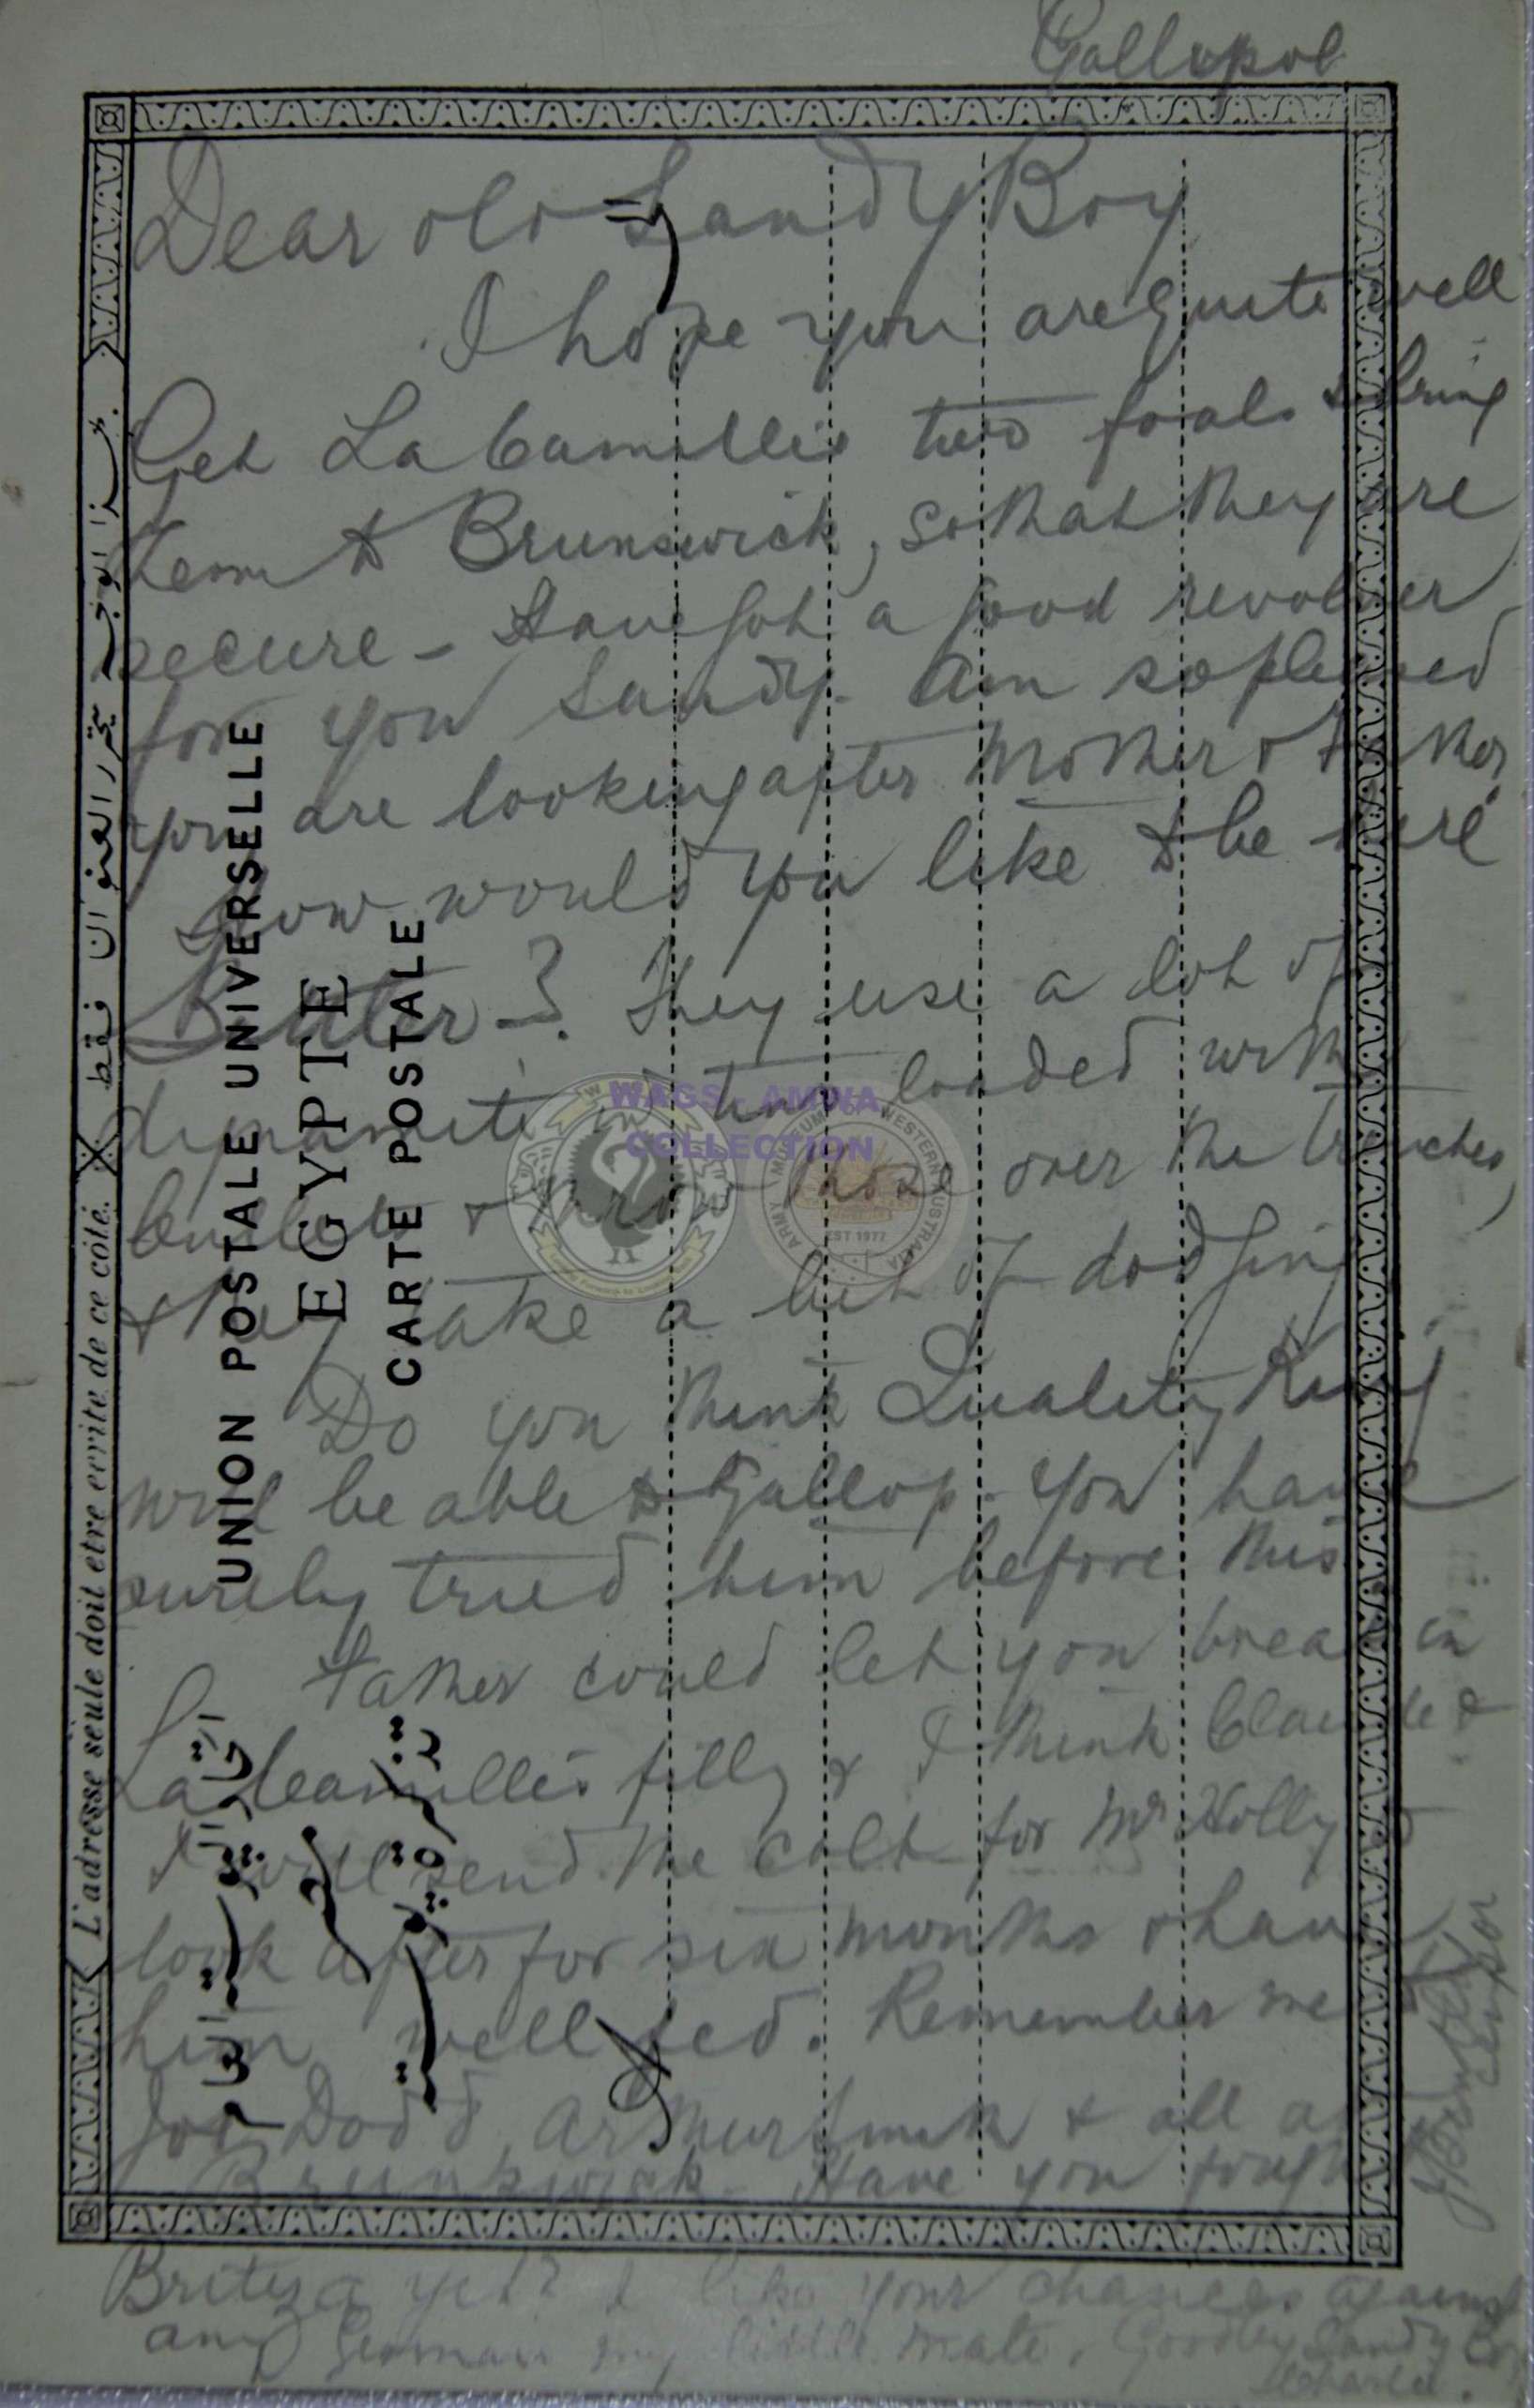 Gallipol
Dear old Sandy Boy
I hope you are quite well
Get La Camillis two foals & bring
them to Brunswick, so that they are
secure - Have got a good revolver
for you Sandy. Am so pleased
you are looking after Mother & Father
How would you like to be here
Butler -? They use a lot of
dynamite in tins loaded with
bullets & throw those over the trenches,
& they take a bit of dodging
Do you think Quality King
will be able to Gallop. You have
surely tried him before this
Father could let you break in
La Camillis filly & I think Claude &
I will send the colt for Mr Holly to
look after for six months & have
him well fed. Remember me to
Joe Dodd, Arthur Smith & all at
Brunswick - Have you fought
yet? I like your chances against
any German my little mate, Goodbye Sandy Boy
Charlie.
Censor
UNION POSTALE UNIVERSELLE
EGYPTE
CARTE POSTALE
L'adresse seule doit etre ecrite de ce côté.
اتحاد البوستة العام
مصر
تذكرة بوستة
هذا الوجه يحرر العنوان فقط
WAGS - AMWA
COLLECTION
ARMY MUSEUM OF WESTERN AUSTRALIA
EST 1977